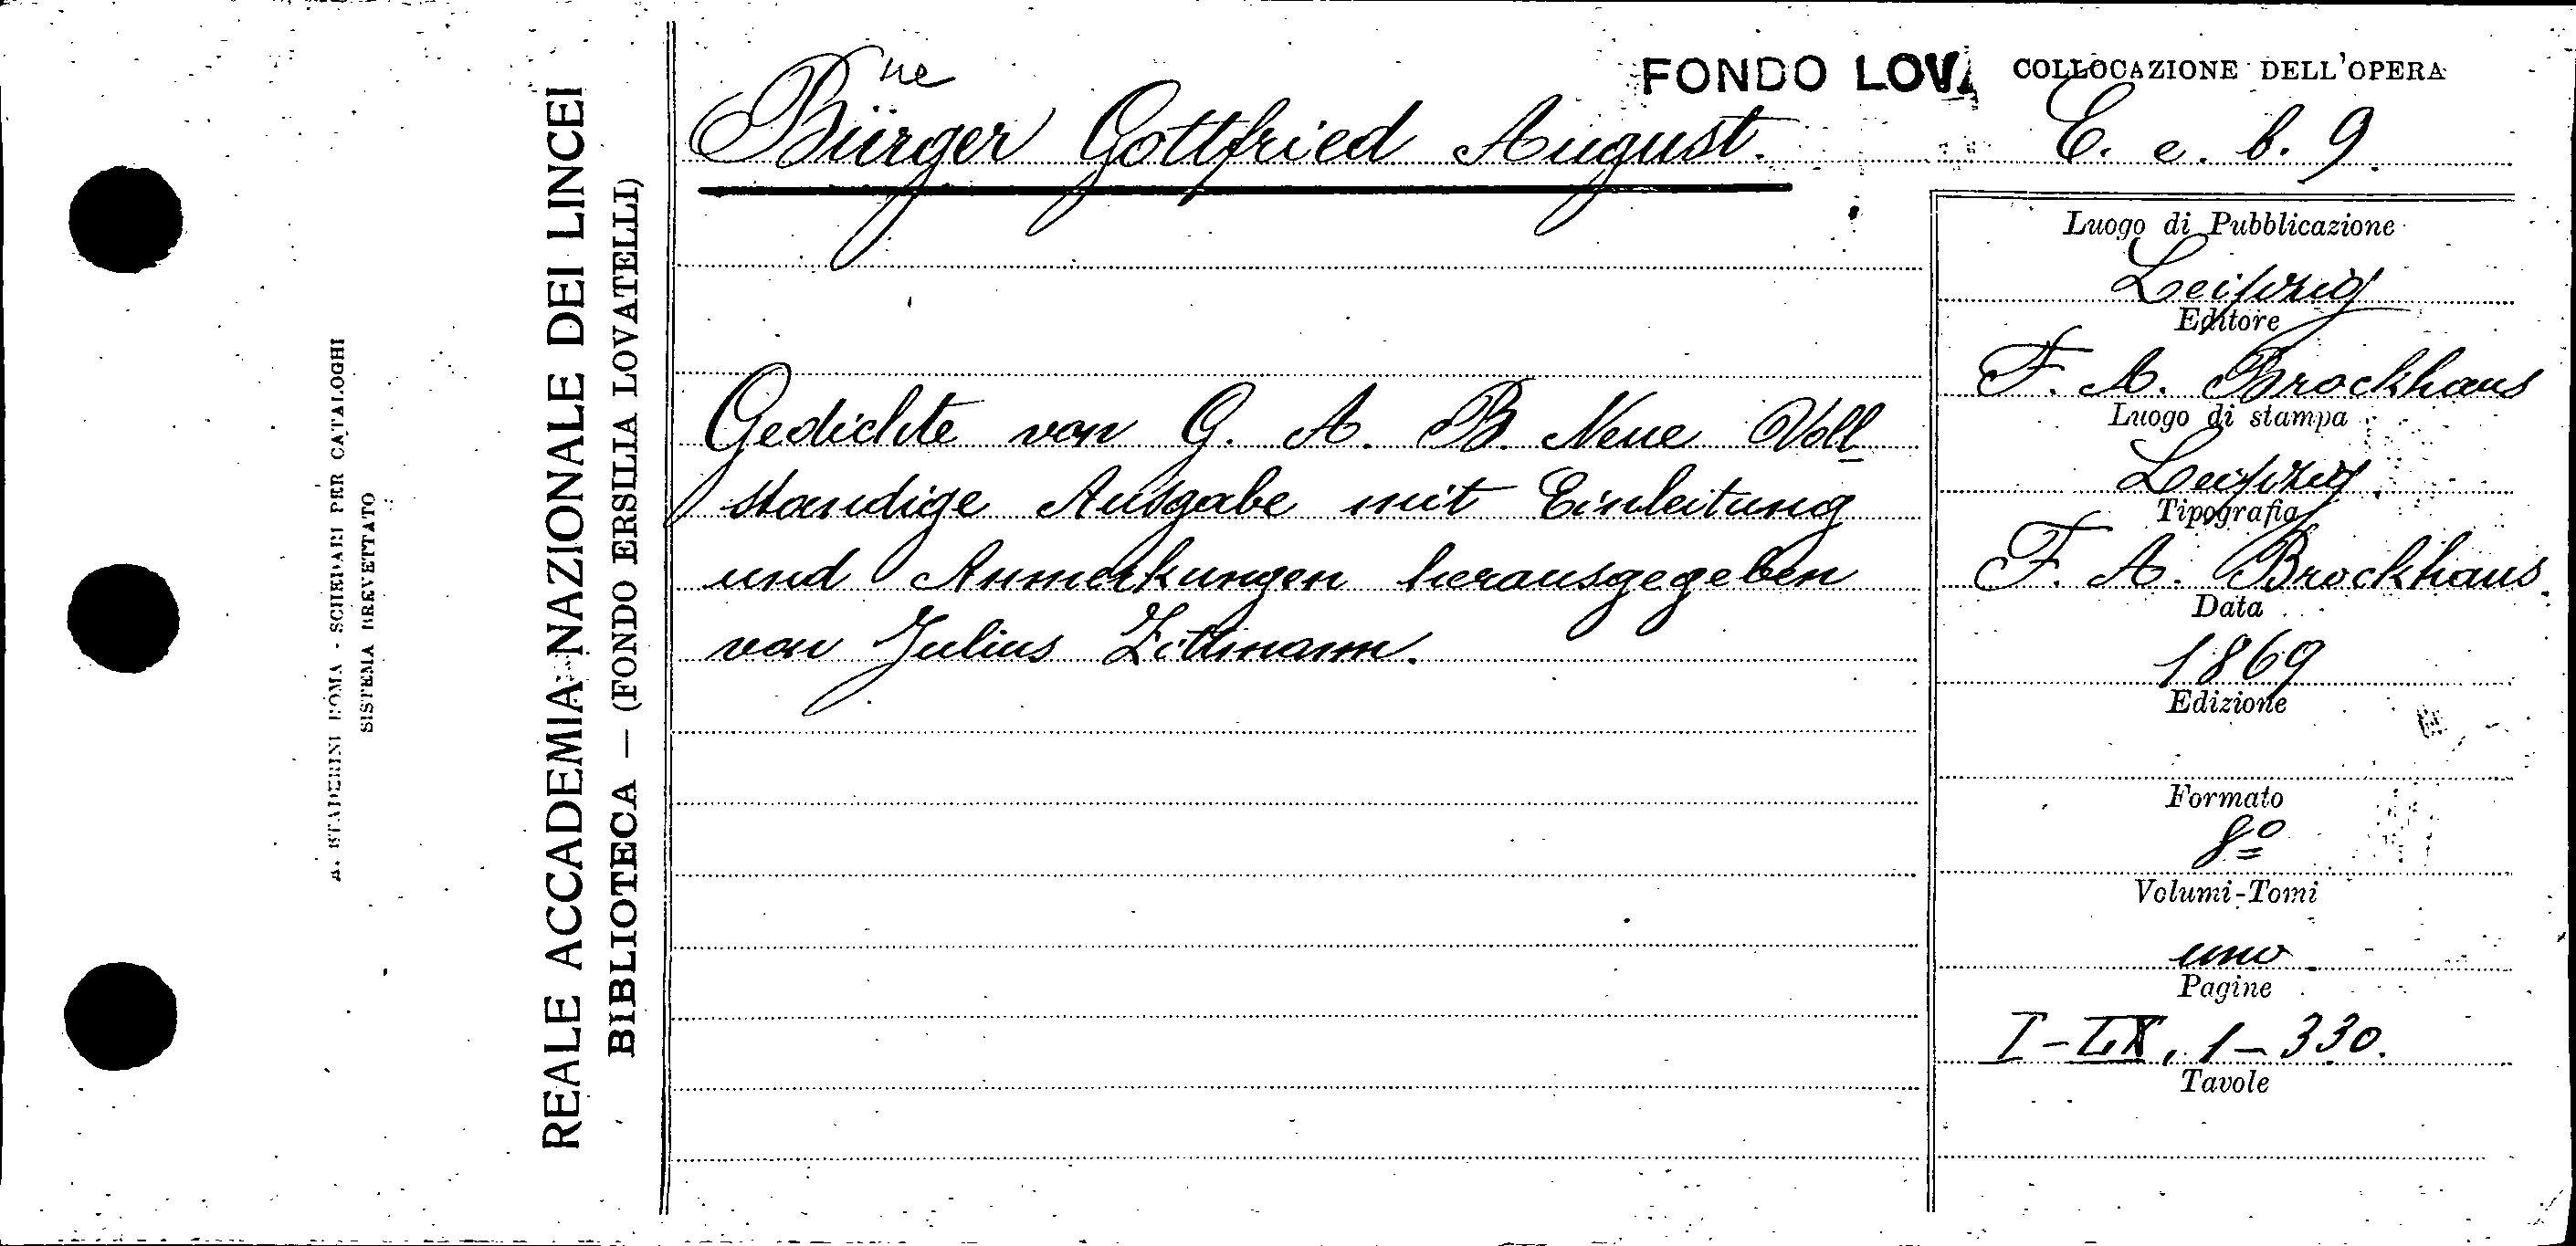 A. STADERINI ROMA - SCHEDARI PER CATALOGHI
SISTEMA BREVETTATO
REALE ACCADEMIA NAZIONALE DEI LINCEI
BIBLIOTECA — (FONDO ERSILIA LOVATELLI)
FONDO LOVA
COLLOCAZIONE DELL'OPERA
E. e. b. 9.
ue
Bürger Gottfried August.
Gedichte von G. A. B. Neue Voll
ständige Ausgabe mit Einleitung
und Anmerkungen herausgegeben
von Julius Zittmann.
Luogo di Pubblicazione
Leipzig
Editore
F. A. Brockhaus
Luogo di stampa
Leipzig
Tipografia
F. A. Brockhaus
Data
1869
Edizione
Formato
8º
Volumi-Tomi
uno
Pagine
I-LX, 1-330.
Tavole